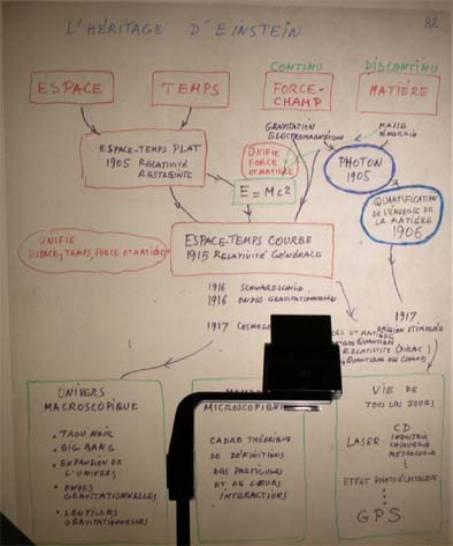 L'HÉRITAGE D'EINSTEIN
CONTINU
DISCONTINU
ESPACE
TEMPS
FORCE-
CHAMP
MATIÈRE
GRAVITATION
ELECTROMAGNÉTISME
MASSE
ÉNERGIE
ESPACE-TEMPS PLAT
1905 RELATIVITÉ
RESTREINTE
UNIFIE
FORCE
ET MATIÈRE
PHOTON
1905
E = Mc2
QUANTIFICATION
DE L'ÉNERGIE DE
LA MATIÈRE
1906
UNIFIE
ESPACE, TEMPS, FORCE ET MATIÈRE
ESPACE-TEMPS COURBE
1915 RELATIVITÉ GÉNÉRALE
1916 SCHWARSCHILD
1916 ONDES GRAVITATIONNELLES
1917
1917
RELATIVISTE (DIRAC)
UNIVERS
MACROSCOPIQUE
• TROU NOIR
• BIG BANG
• EXPANSION DE
L'UNIVERS
• ONDES
GRAVITATIONNELLES
• LENTILLES
GRAVITATIONNELLES
MICROSCOPIQUE
CADRE THÉORIQUE
DE DÉFINITIONS
DES PARTICULES
ET DE LEURS
INTERACTIONS
VIE DE
TOUS LES JOURS
LASER
CD
INDUSTRIE
CHIRURGIE
MÉTROLOGIE
EFFET PHOTOÉLECTRIQUE
GPS